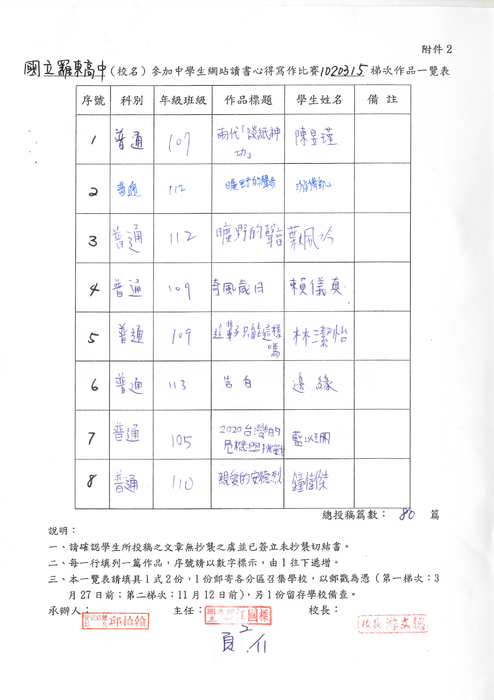 附件 2
國立羅東高中(校名)參加中學生網站讀書心得寫作比賽1020315梯次作品一覽表
序號 科別 年級班級 作品標題 學生姓名 備註
1 普通 107 兩代「談紙神功」 陳昱瑾
2 普通 112 曠野的聲音
3 普通 112 曠野的聲音 葉佩吟
4 普通 109 奇風歲月 賴儀真
5 普通 109 這輩子只能這樣嗎 林潔怡
6 普通 113 告白 邊緣
7 普通 105 2020台灣的危機與挑戰
8 普通 110 親愛的安德烈
總投稿篇數: 80 篇
說明:
一、請確認學生所投稿之文章無抄襲之虞並已簽立未抄襲切結書。
二、每一行填列一篇作品,序號請以數字標示,由1往下遞增。
三、本一覽表請填具1式2份,1份郵寄各分區召集學校,以郵戳為憑(第一梯次:3
月27日前;第二梯次:11月12日前),另1份留存學校備查。
承辦人: 邱柏翰 主任: 國樑 校長: 校長 游文聰
頁2/11